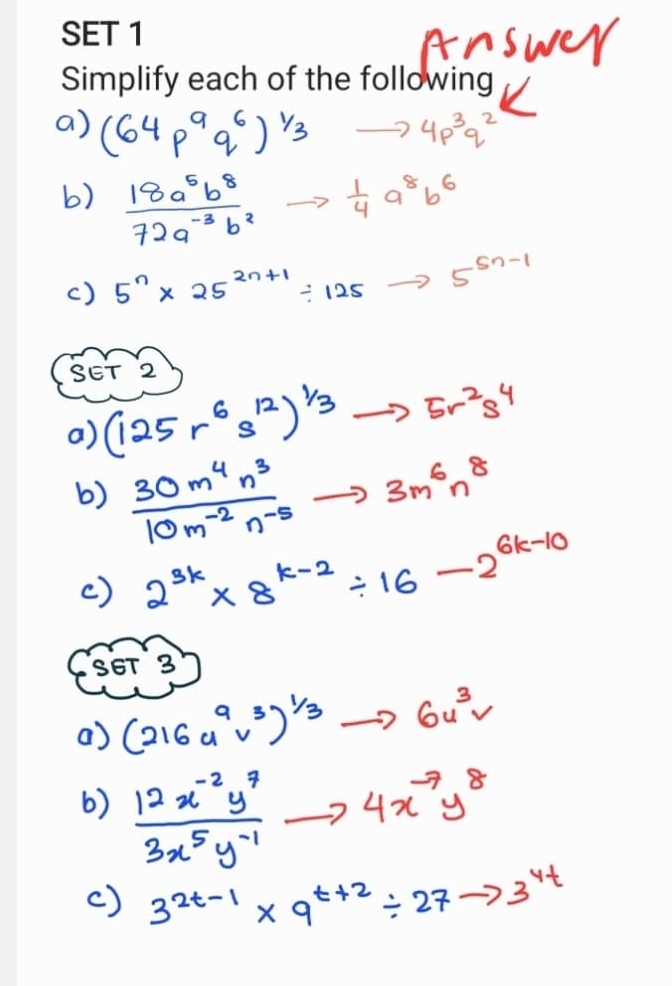 SET 1 Answer
Simplify each of the following
a) (64 p⁹ q⁶)^1/3 → 4p³q²
b) 18a⁵b⁸ / 72a⁻³b² → 1/4 a⁸b⁶
c) 5ⁿ × 25²ⁿ⁺¹ ÷ 125 → 5⁵ⁿ⁻¹
SET 2
a) (125 r⁶ s¹²)^1/3 → 5r²s⁴
b) 30m⁴n³ / 10m⁻²n⁻⁵ → 3m⁶n⁸
c) 2³ᵏ × 8ᵏ⁻² ÷ 16 — 2⁶ᵏ⁻¹⁰
SET 3
a) (216u⁹v³)^1/3 → 6u³v
b) 12x⁻²y⁷ / 3x⁵y⁻¹ → 4x⁻⁷y⁸
c) 3²ᵗ⁻¹ × 9ᵗ⁺² ÷ 27 → 3⁴ᵗ